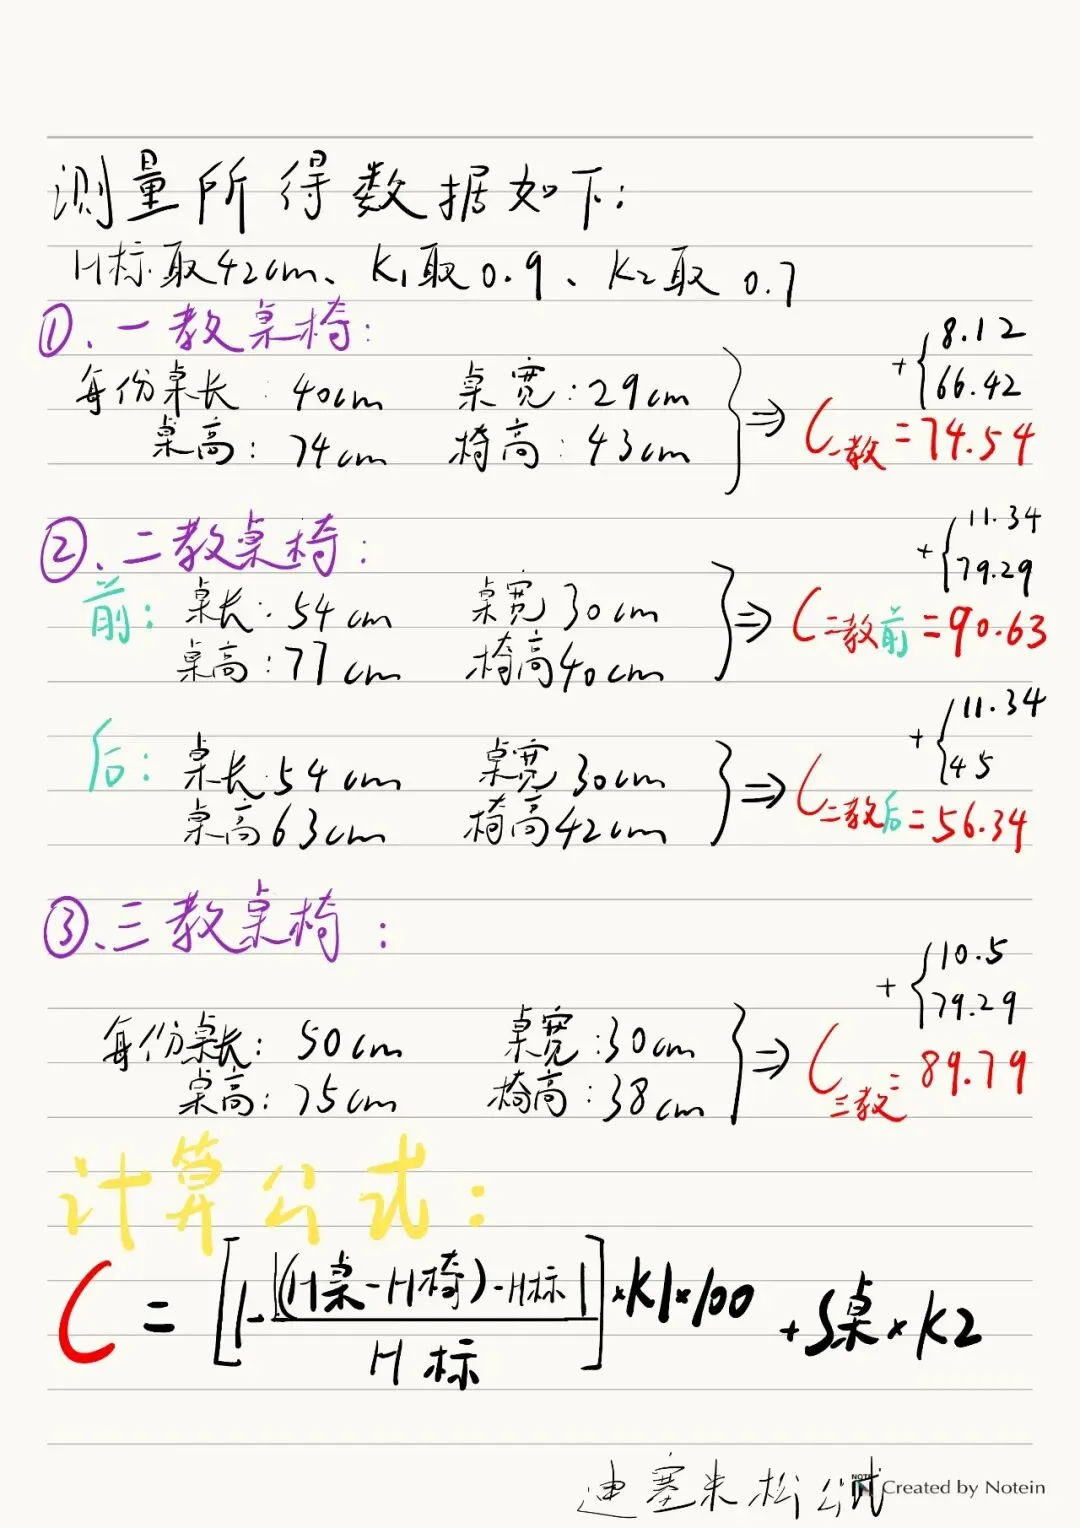 测量所得数据如下:
H标取42cm、K1取0.9、K2取 0.7
①、一教桌椅:
每份桌长:40cm 桌宽:29cm
桌高:74cm 椅高:43cm
+ { 8.12
66.42
⇒ C一教=74.54
②、二教桌椅:
前: 桌长:54cm 桌宽30cm
桌高:77cm 椅高40cm
+ { 11.34
79.29
⇒ C二教前=90.63
后: 桌长54cm 桌宽30cm
桌高63cm 椅高42cm
+ { 11.34
45
⇒ C二教后=56.34
③、三教桌椅:
每份桌长:50cm 桌宽:30cm
桌高:75cm 椅高:38cm
+ { 10.5
79.29
⇒ C三教=89.79
计算公式:
C=[1-|(H桌-H椅)-H标|/H标]×K1×100+S桌×K2
迪塞米松公式
Created by Notein